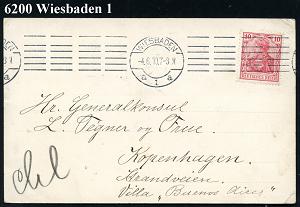 6200 Wiesbaden 1
WIESBADEN
10 10
DEUTSCHES REICH
Hr. Generalkonsul
L. Tegner og Frue.
Kopenhagen.
Strandveien.
Villa „Buenos Aires"